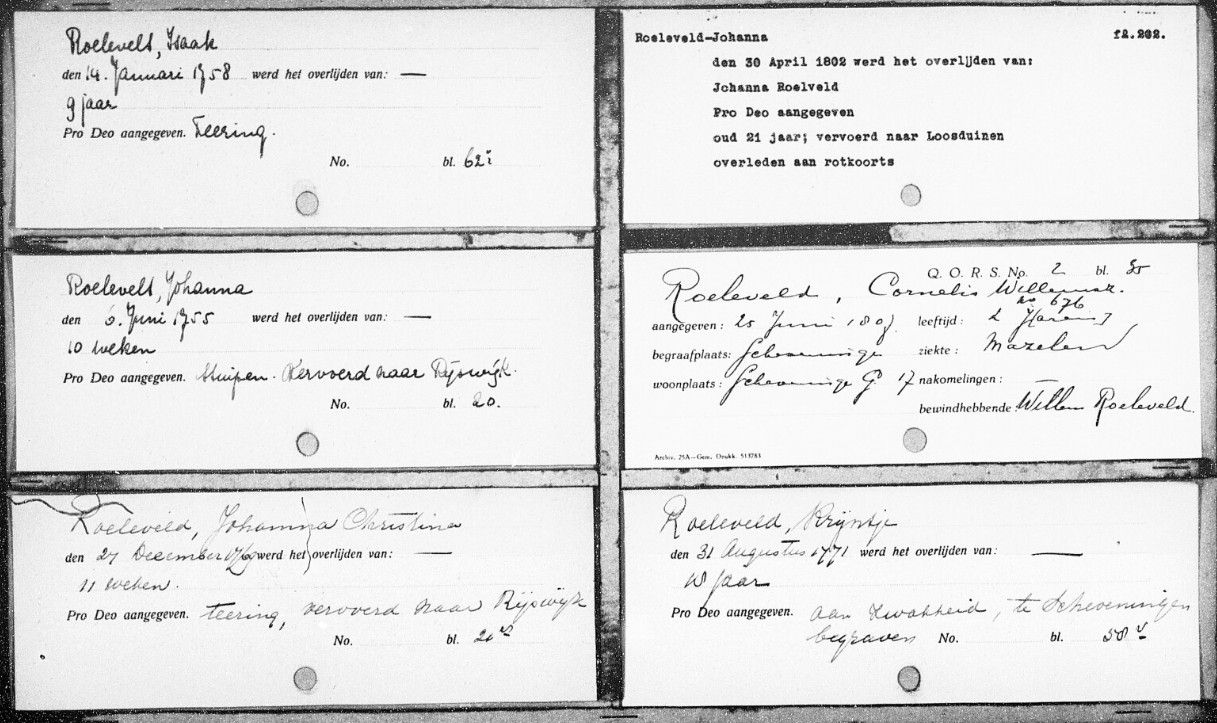 Roelevelt, Isaak
den 14. Januari 1758 werd het overlijden van: —
9 jaar
Pro Deo aangegeven. Teering.
No. bl. 62v
Roelevelt, Johanna
den 6. Juni 1755 werd het overlijden van: —
10 weken
Pro Deo aangegeven. Stuipen. Vervoerd naar Rijswijk.
No. bl. 20.
Roeleveld, Johanna Christina
den 27 December werd het overlijden van: —
11 weken.
Pro Deo aangegeven. teering, vervoerd naar Rijswijk
No. bl.
Roeleveld-Johanna f2.262.
den 30 April 1802 werd het overlijden van:
Johanna Roelveld
Pro Deo aangegeven
oud 21 jaar; vervoerd naar Loosduinen
overleden aan rotkoorts
Q. O. R. S. No. 2 bl.
Roeleveld, Cornelis Willemsz.
no 676
aangegeven: 25 Juni leeftijd: 2
begraafplaats: Scheveninge ziekte: Mazelen
woonplaats: Scheveninge G 17 nakomelingen:
bewindhebbende: Willem Roeleveld.
Archw. 25A—Gem. Drukk. 513783
Roeleveld, Krijntje
den 31 Augustus 1771 werd het overlijden van: —
jaar
Pro Deo aangegeven. aan zwakheid, te Scheveningen
begraven No. bl. 58v